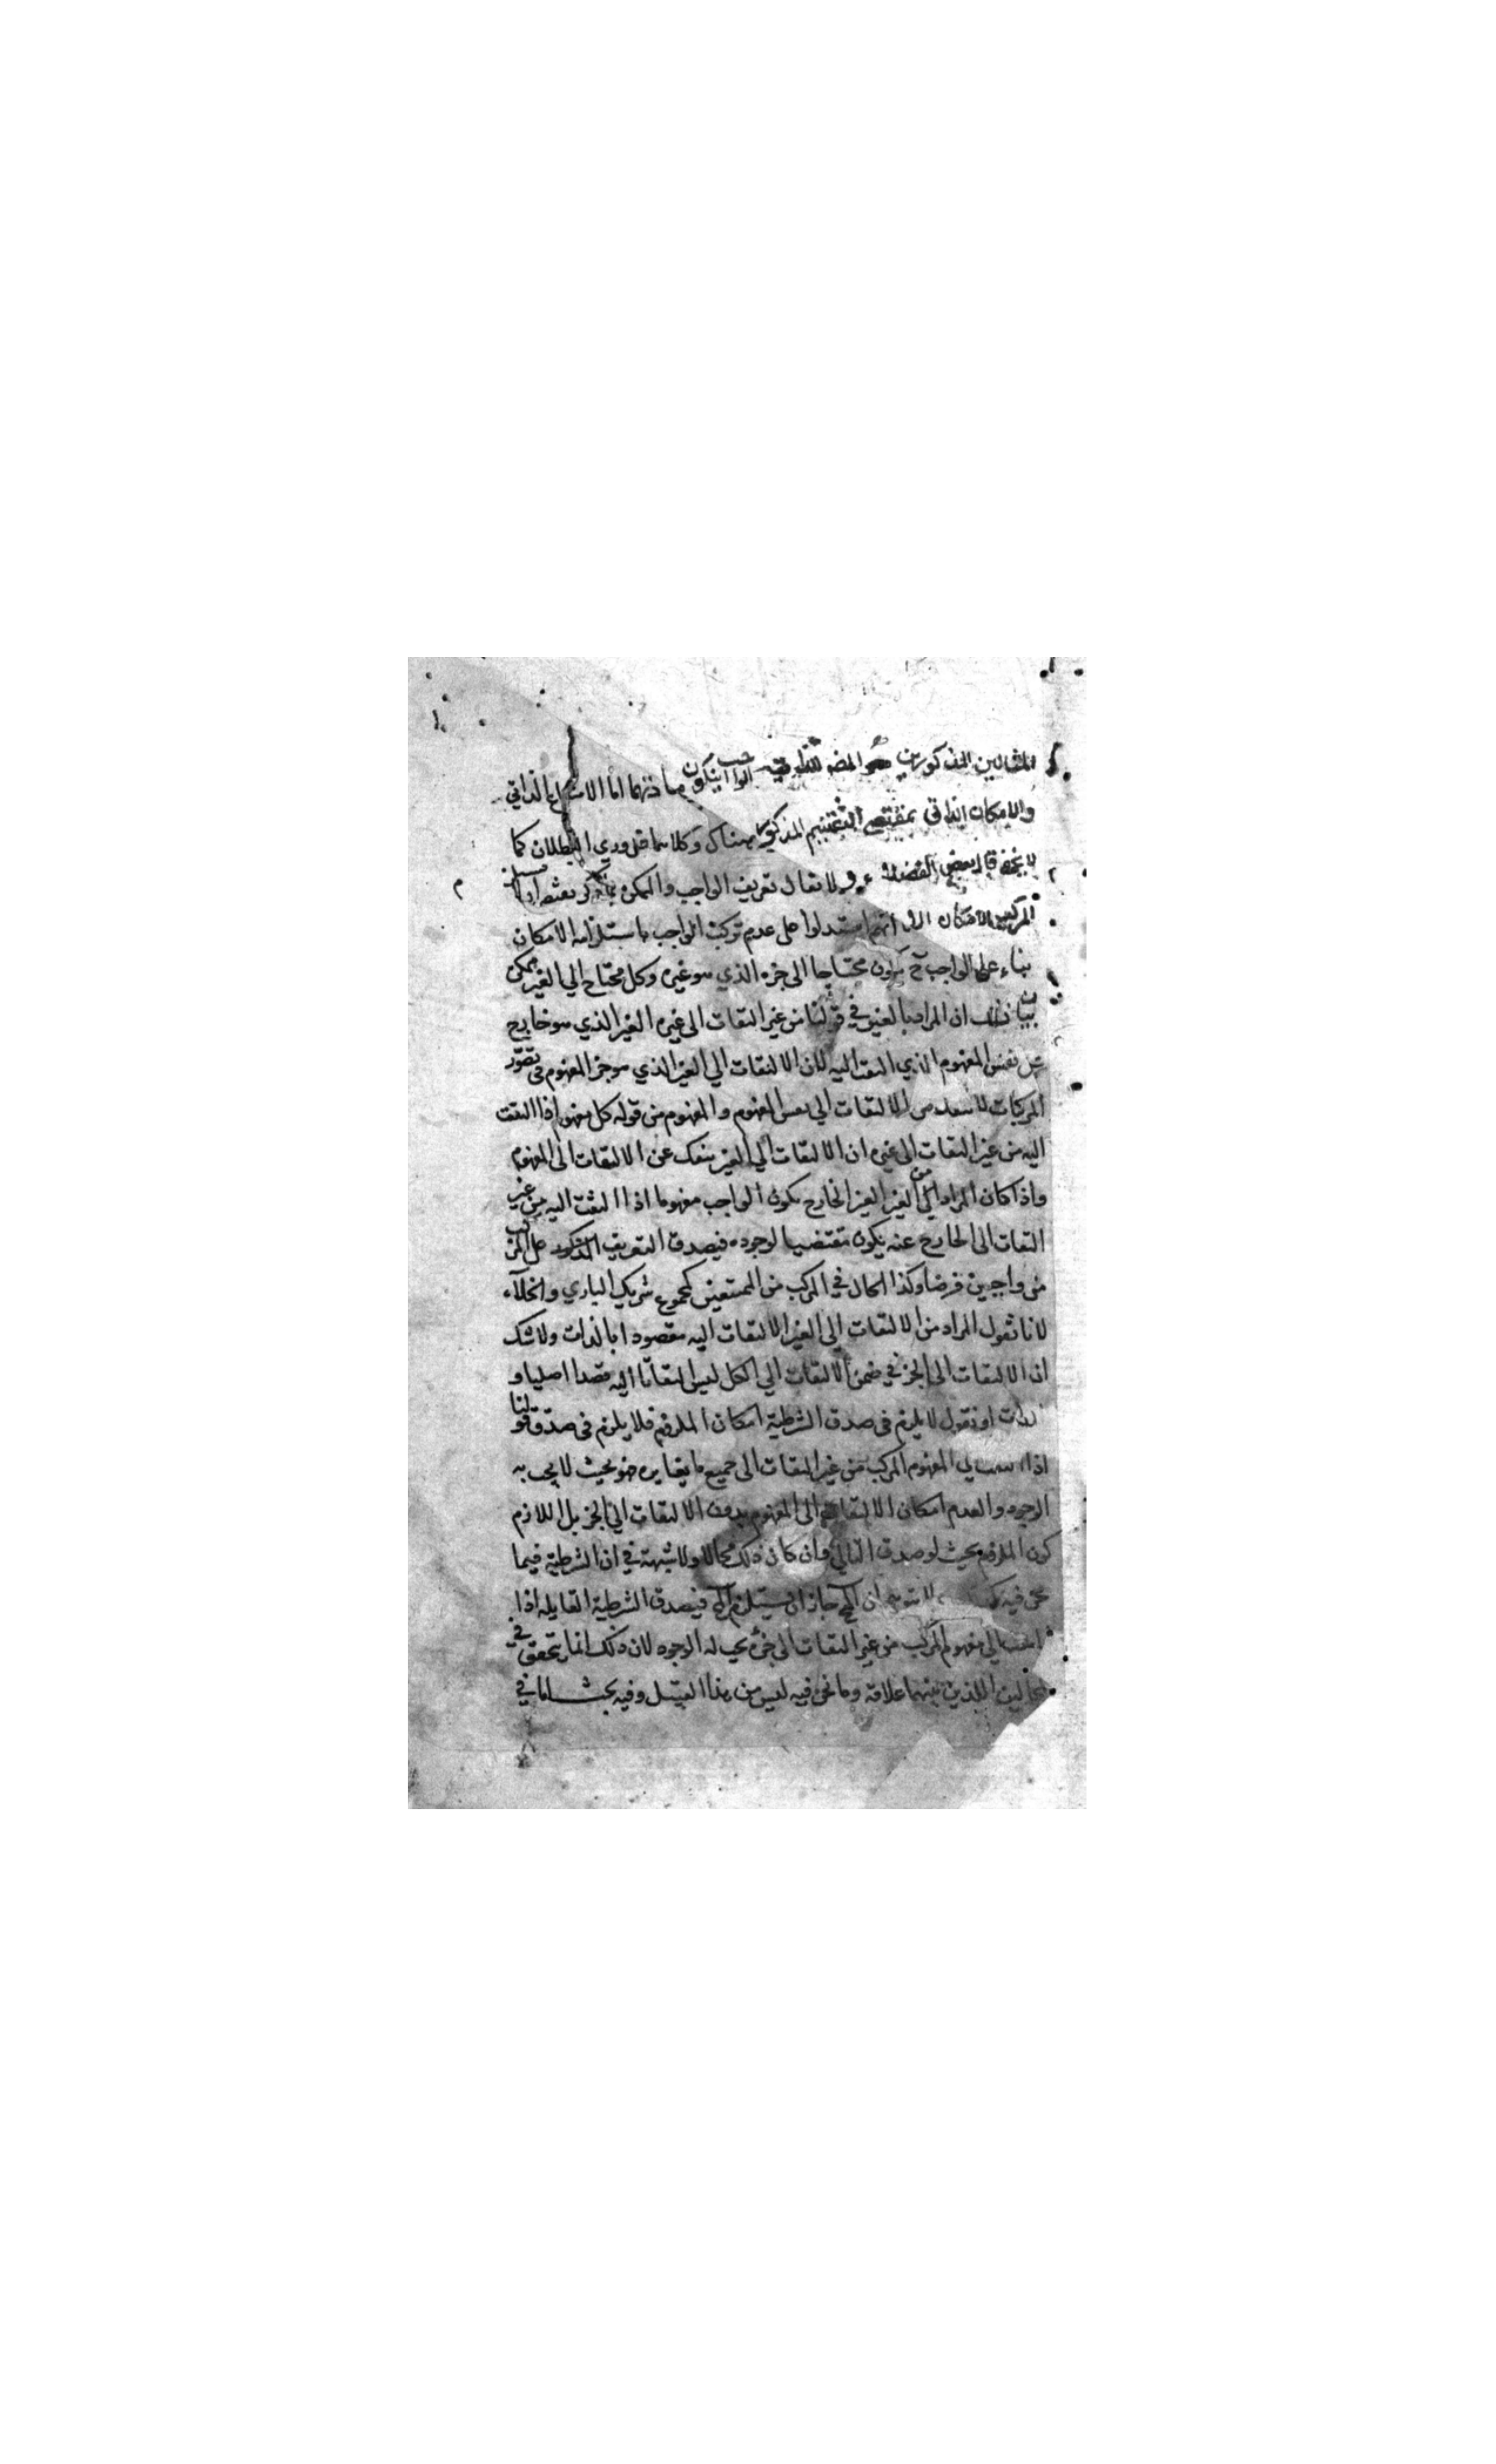 المثالين المذكورين هو الواجب اينكون مباذتهما اما الامتناع الذاتي
والامكان الذاتي بمقتضى المذكور هناك وكلاهما ضروري البطلان كما
لا يخفى قال بعض الفضلاء ولا يقال تعريف الواجب والممكن بما ذكر
المركب الامكان انهم استدلوا على عدم تركب الواجب باستلزامه الامكان
بناء على الواجب ح يكون محتاجا الى جزءه الذي هو غيره وكل محتاج الى الغير ممكن
بيان ذلك ان المراد بالغير في قولنا من غير التفات الى غيره الغير الذي هو خارج
عن نفس المفهوم الذي التفت اليه لان الالتفات الي الغير الذي هو جزء المفهوم في تصور
المركبات لا ينفك من الالتفات الي نفس المفهوم والمفهوم من قوله كل مفهوم اذا التفت
اليه من غير التفات الى غيره ان الالتفات الي الغير ينفك عن الالتفات الى المفهوم
واذا كان المراد من الغير الغير الخارج يكون الواجب مفهوما اذا التفت اليه من غير
التفات الى الخارج عنه يكون مقتضيا لوجوده فيصدق التعريف المذكور على المركب
من واجبين فرضا وكذا الحال في المركب من الممتنعين كمجموع شريك الباري والخلاء
لانا نقول المراد من الالتفات الي الغير الالتفات اليه مقصودا بالذات ولا شك
ان الالتفات الى الجزء في ضمن الالتفات الي الكل ليس التفاتا اليه قصدا اصليا و
او نقول لا يلزم في صدق الشرطية امكان الملزوم فلا يلزم في صدق قولنا
اذا المفهوم المركب من غير التفات الى جميع ما يغايره فهو بحيث لا يجب به
الوجود والعدم امكان الالتفات الى المفهوم بدون الالتفات الي الجزء بل اللازم
كون الملزوم بحيث لو صدق التالي وان كان ذلك محالا ولا شبهة في ان الشرطية فيما
نحن فيه لا يتوهم ان المح جاز ان يستلزم المح فيصدق الشرطية القايلة اذا
التفت الي مفهوم المركب من غير التفات الى جزءه يجب له الوجود لان ذلك انما يتحقق في
محالين اللذين بينهما علاقة وما نحن فيه ليس من هذا القبيل وفيه بحث اما في